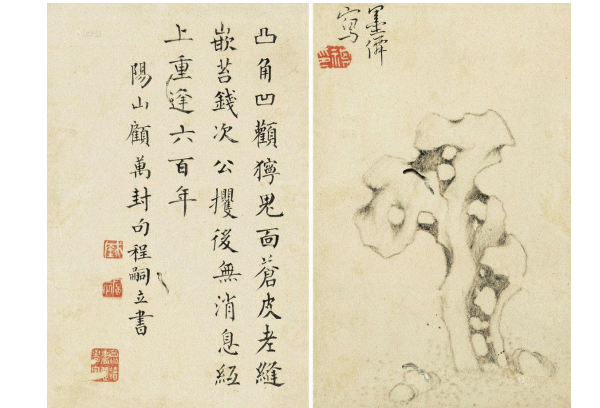 墨
寫
凸角凹顴獰鬼面蒼皮老縫
嵌苔錢次公攫後無消息紙
上重逢六百年
陽山顧萬封句程嗣立書